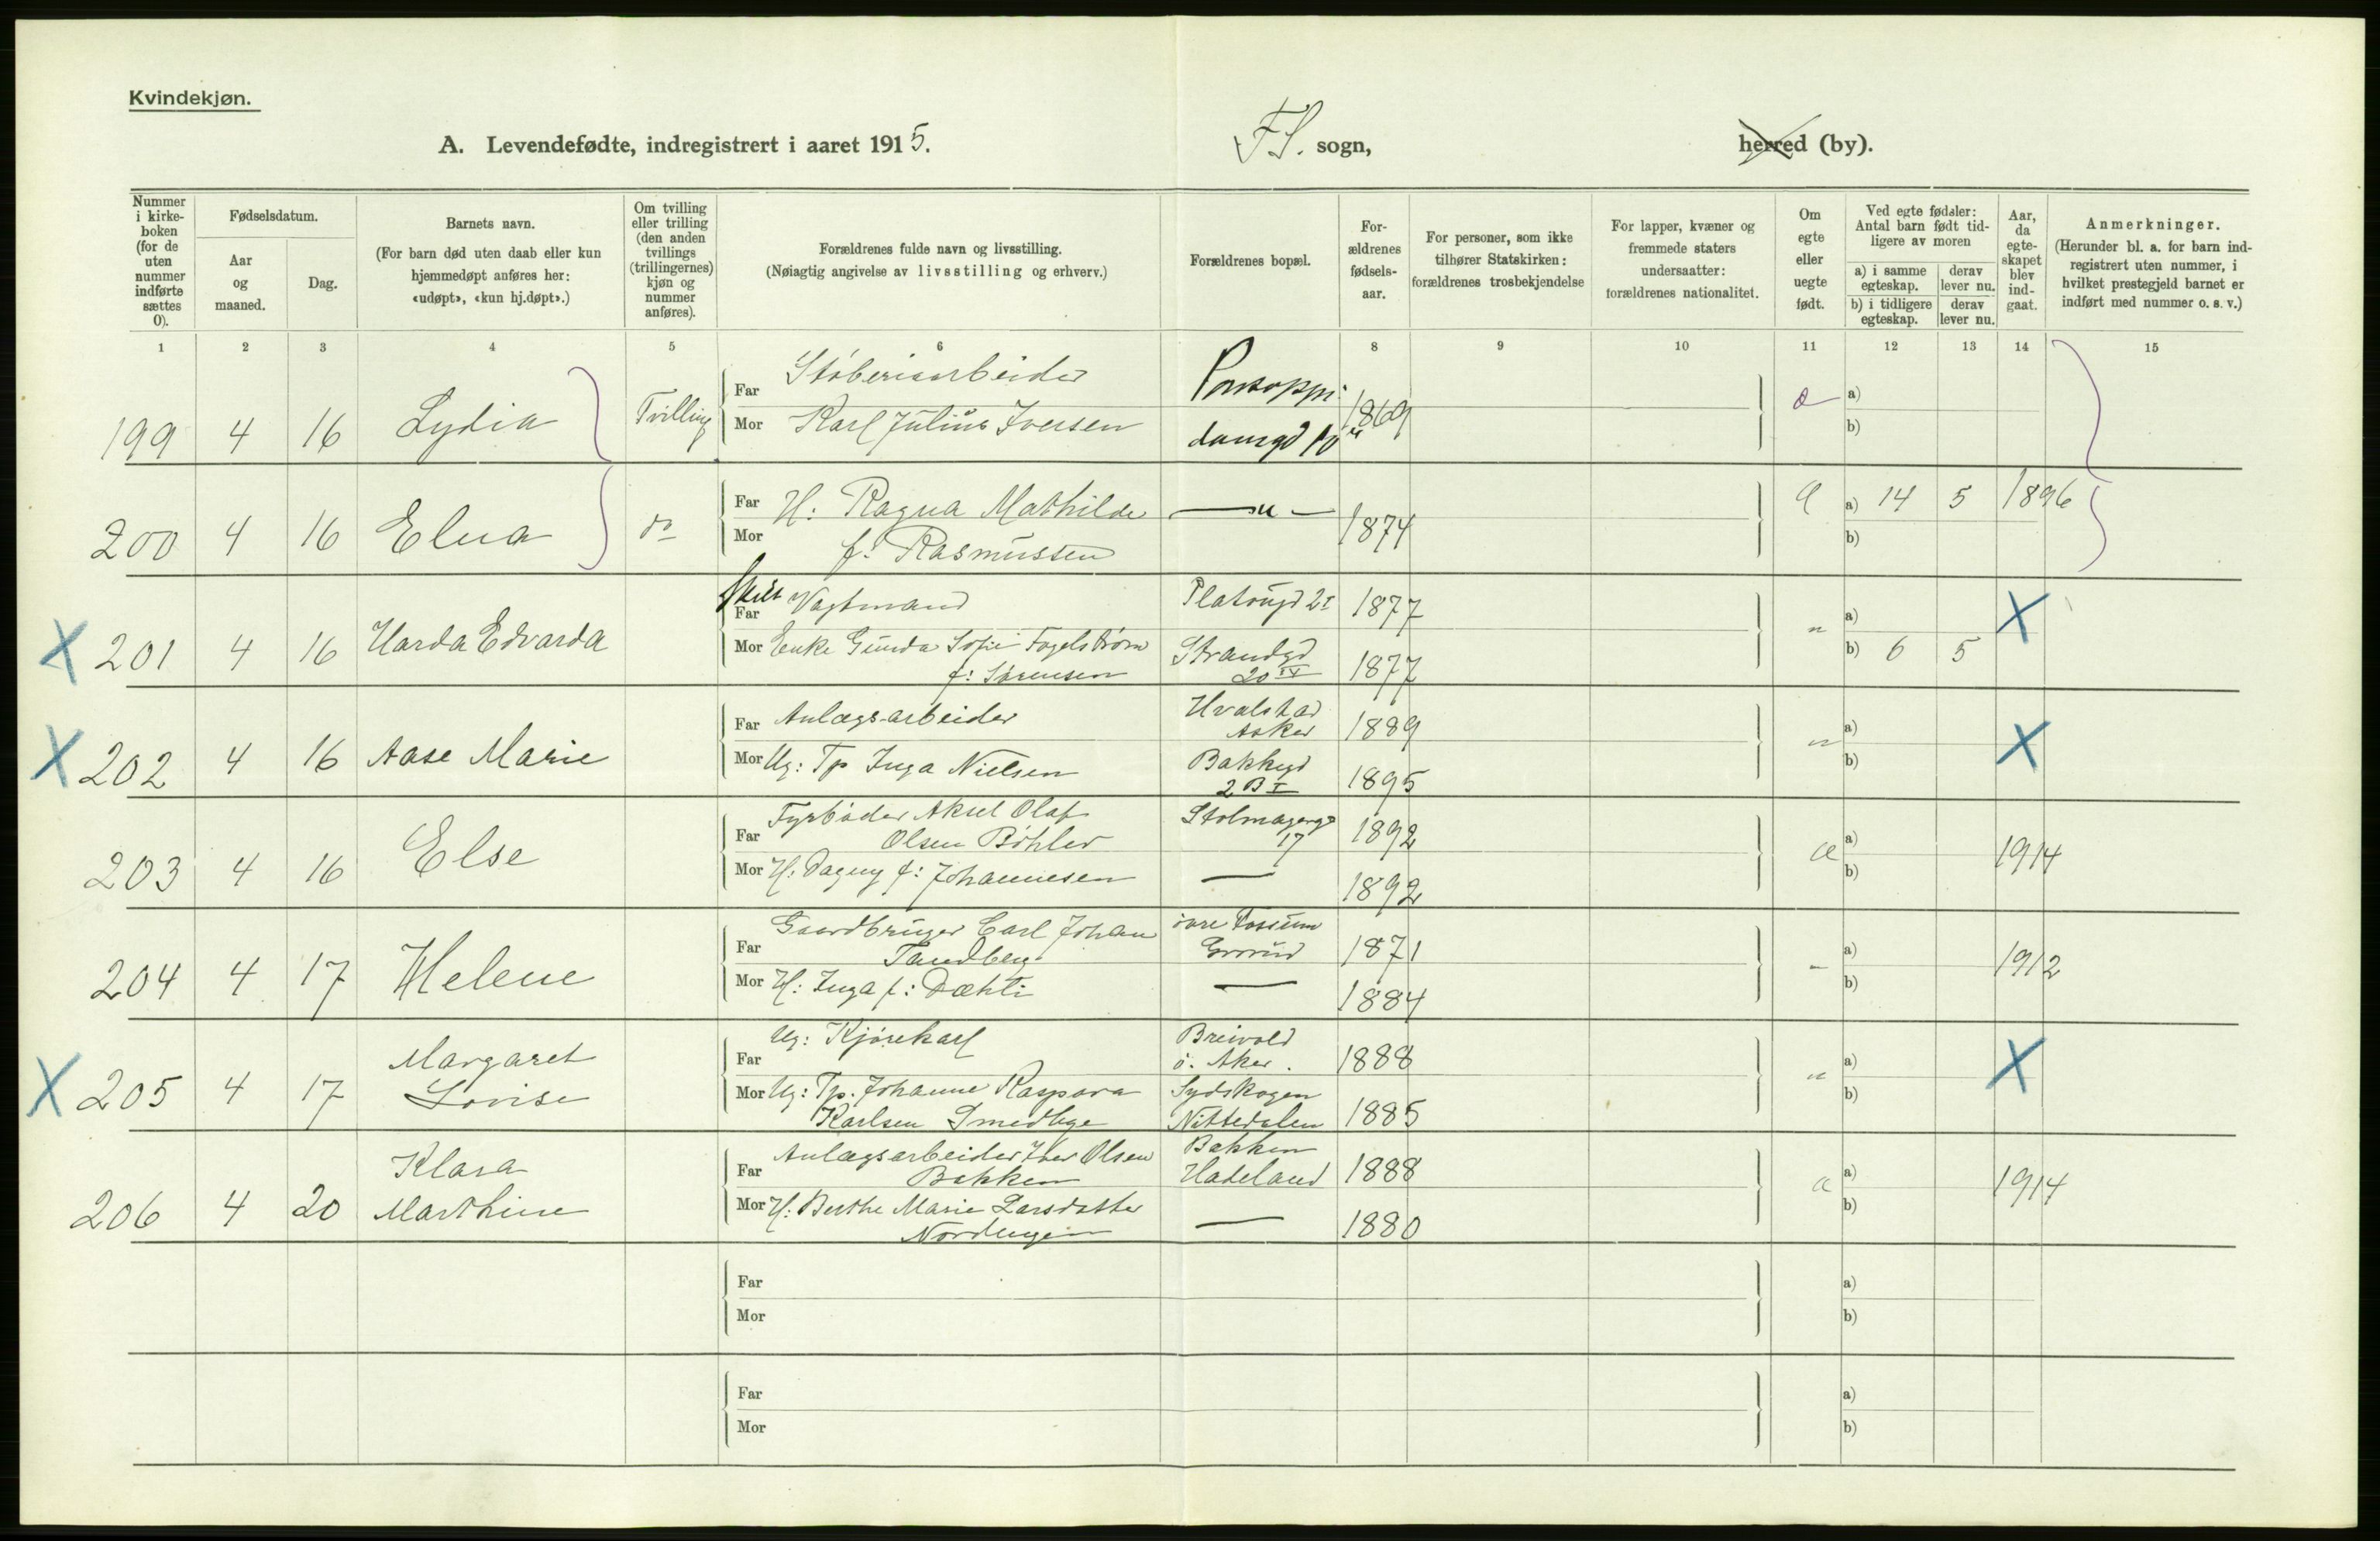 Kvindekjøn.
A. Levendefødte, indregistrert i aaret 1915.
F S. sogn,
herred (by).
Nummer i kirkeboken (for de uten nummer indførte sættes 0).
Fødselsdatum.
Aar og maaned.
Dag.
Barnets navn.
(For barn død uten daab eller kun hjemmedøpt anføres her: «udøpt», «kun hj.døpt».)
Om tvilling eller trilling (den anden tvillings (trillingernes) kjøn og nummer anføres).
Forældrenes fulde navn og livsstilling.
(Nøiagtig angivelse av livsstilling og erhverv.)
Forældrenes bopæl.
Forældrenes fødselsaar.
For personer, som ikke tilhører Statskirken: forældrenes trosbekjendelse
For lapper, kvæner og fremmede staters undersaatter: forældrenes nationalitet.
Om egte eller uegte født.
Ved egte fødsler: Antal barn født tidligere av moren
a) i samme egteskap.
derav lever nu.
b) i tidligere egteskap.
derav lever nu.
Aar, da egteskapet blev indgaat.
Anmerkninger.
(Herunder bl. a. for barn indregistrert uten nummer, i hvilket prestegjeld barnet er indført med nummer o. s. v.)
1 2 3 4 5 6 8 9 10 11 12 13 14 15
199 4 16 Lydia Tvilling
Far Støberiarbeider
Mor Karl Julius Iversen
1869
a)
b)
200 4 16 Elna do
Far H: Ragna Mathilde — " — a) 14 5 1896
Mor f: Rasmussen 1874
b)
X 201 4 16 Harda Edvarda
Skilt Far Vagtmand Platougd 2 I 1877 a) X
Mor Enke Gunda Sofie Fagelstrøm Strandgd
f: Sørensen 20 IV 1877 " b) 6 5
X 202 4 16 Aase Marie
Far Anlægsarbeider Hvalstad Asker 1889 " a) X
Mor Ug: Tp Inga Nielsen Bakkegd 2 B I 1895 b)
203 4 16 Else
Far Fyrbøder Aksel Olaf
Olsen Bøhler Stolmagergd 17 1892 a) 1914
Mor H. Dagny f: Johannesen — 1892 b)
204 4 17 Helene
Far Gaardbruger Carl Johan
Tandberg øvre Fossum Grorud 1871 a) 1912
Mor H: Inga f: Dæhli — 1884 b)
X 205 4 17 Margaret Lovise
Far Ug: Kjørekarl Breivold ø. Aker. 1888 " a) X
Mor Ug: Tp. Johanne Kaspara
Karlsen Smedhge Sydskogen Nittedalen 1885 b)
206 4 20 Klara Marthine
Far Anlægsarbeider Iver Olsen
Bakken Bakken Hadeland 1888 a a) 1914
Mor H: Berthe Marie Larsdatter
Nordengen — 1880 b)
Far a)
Mor b)
Far a)
Mor b)